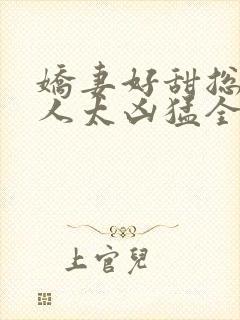 嬌妻好甜
人太凶猛全
上官兒